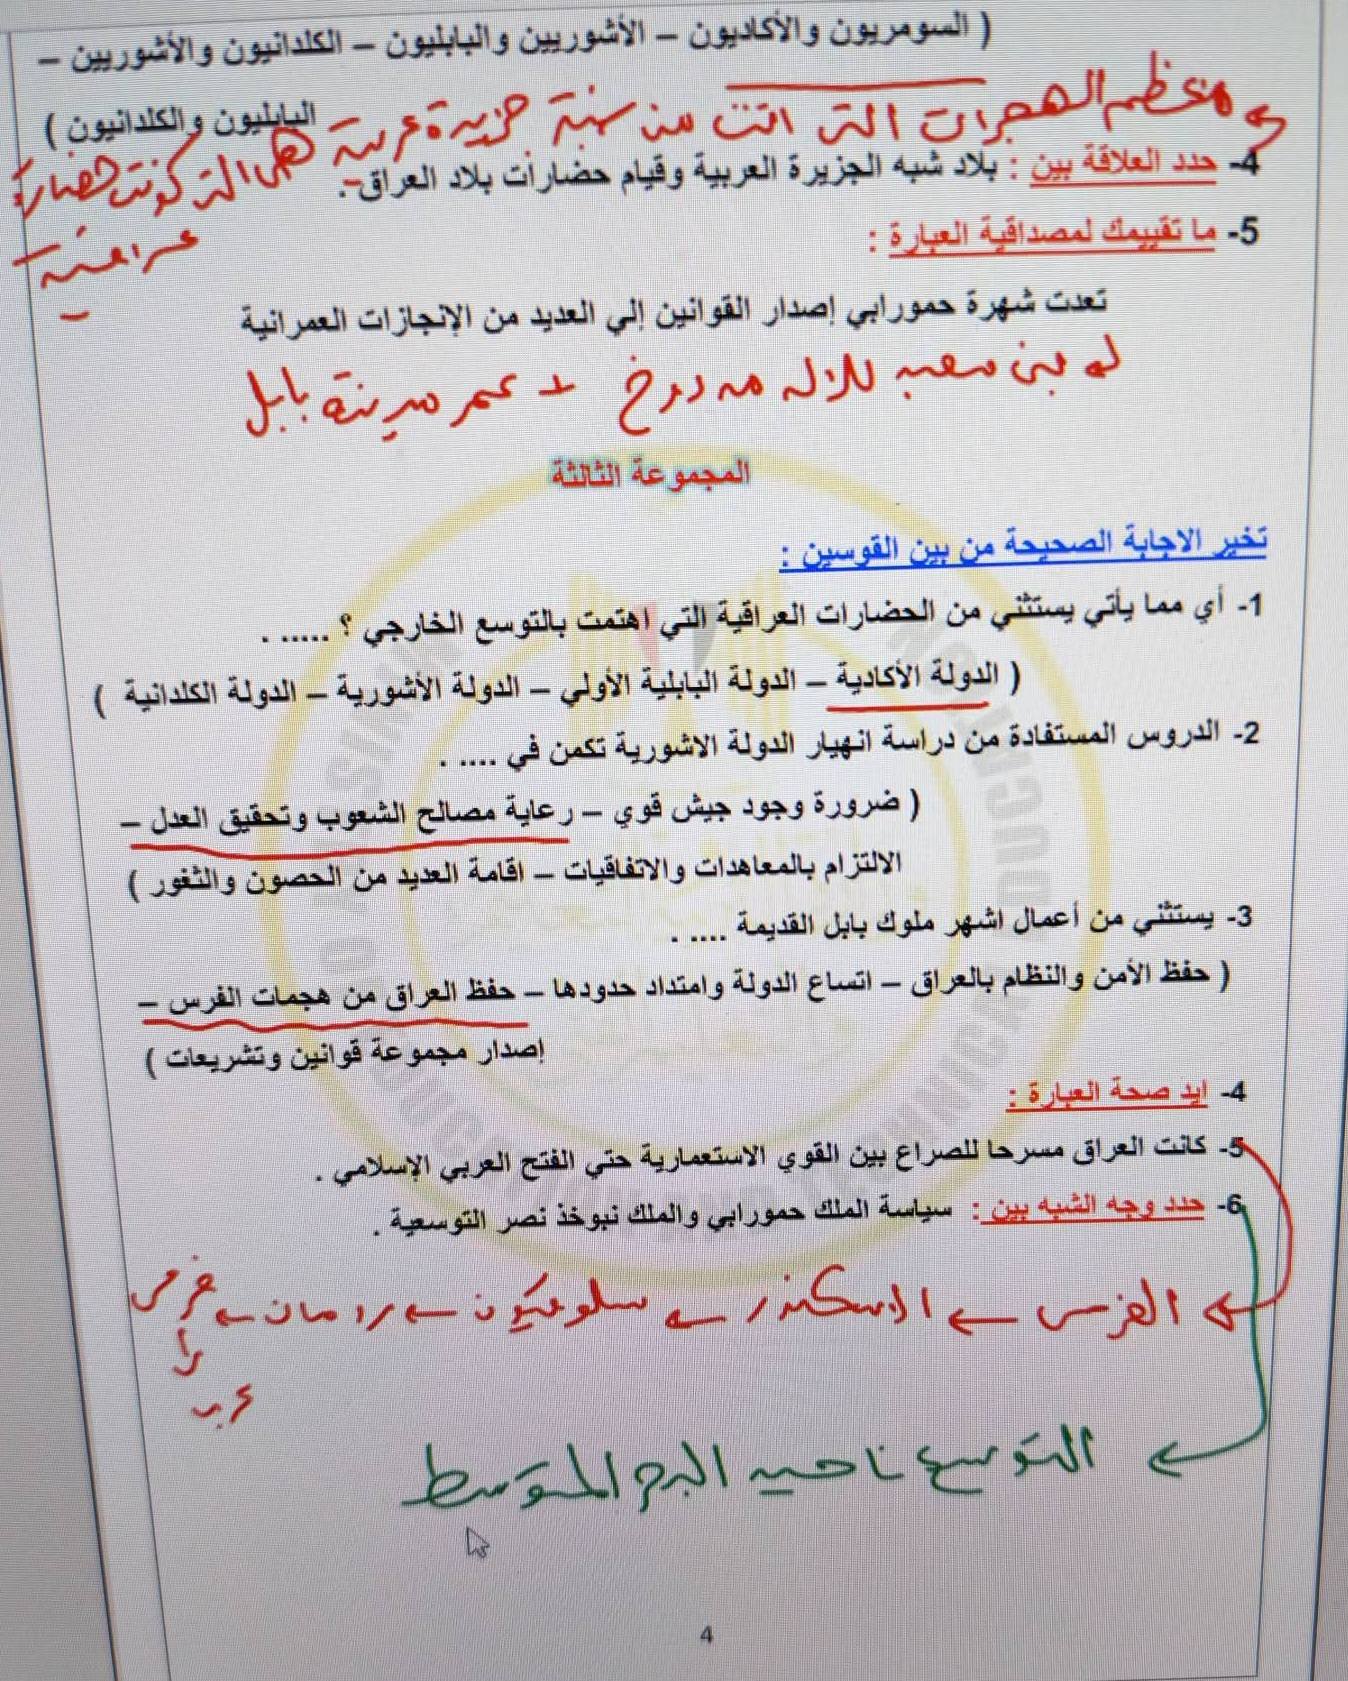 ( السومريون والأكاديون – الأشوريين والبابليون – الكلدانيون والأشوريين –
البابليون والكلدانيون )
معظم الهجرات التى اتت من شبه جزيرة عربية هى التى كونت حضارة
عراقية
4- حدد العلاقة بين : بلاد شبه الجزيرة العربية وقيام حضارات بلاد العراق .
5- ما تقييمك لمصداقية العبارة :
تعدت شهرة حمورابي إصدار القوانين إلي العديد من الإنجازات العمرانية
بنى معبد للاله مردوخ + عمر مدينة بابل
المجموعة الثالثة
تخير الاجابة الصحيحة من بين القوسين :
1- أي مما يأتي يستثني من الحضارات العراقية التي اهتمت بالتوسع الخارجي ؟ ..... .
( الدولة الأكادية – الدولة البابلية الأولي – الدولة الأشورية – الدولة الكلدانية )
2- الدروس المستفادة من دراسة انهيار الدولة الاشورية تكمن في .... .
( ضرورة وجود جيش قوي – رعاية مصالح الشعوب وتحقيق العدل –
الالتزام بالمعاهدات والاتفاقيات – اقامة العديد من الحصون والثغور )
3- يستثني من أعمال اشهر ملوك بابل القديمة .... .
( حفظ الأمن والنظام بالعراق – اتساع الدولة وامتداد حدودها – حفظ العراق من هجمات الفرس –
إصدار مجموعة قوانين وتشريعات )
4- ايد صحة العبارة :
5- كانت العراق مسرحا للصراع بين القوي الاستعمارية حتي الفتح العربي الإسلامي .
6- حدد وجه الشبه بين : سياسة الملك حمورابي والملك نبوخذ نصر التوسعية .
الفرس ← الاسكندر ← سلوقيون ← رومان ← فرس
عرب
التوسع ناحيه البحر المتوسط
4